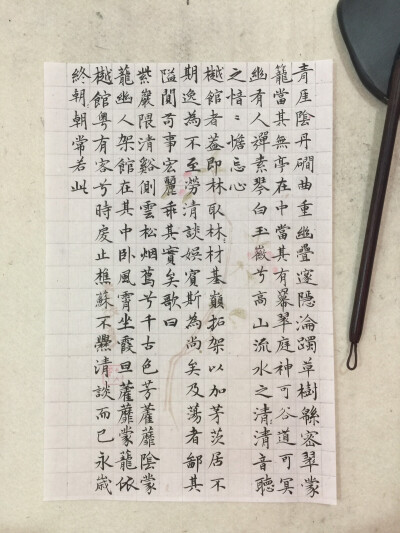 青厓陰丹磵曲重幽疊邃隱淪躅草樹緜密翠蒙
籠當其無亭在中當其有羃翠庭神可谷道可冥
幽有人彈素琴白玉徽兮高山流水之清清音聽
之愔〻憺忘心
樾館者蓋即林取林材基巔拓架以加茅茨居不
期逸為不至勞清談娛賓斯為尚矣及蕩者鄙其
隘閒苟事宏麗乖其實矣歌曰
紫巖隈清谿側雲松烟蔦兮千古色芳靃蘼陰蒙
籠幽人架館在其中卧風霄坐霞旦靃蘼蒙籠依
樾館粵有客兮時戾止樵蘇不爨清談而已永歲
終朝朝常若此